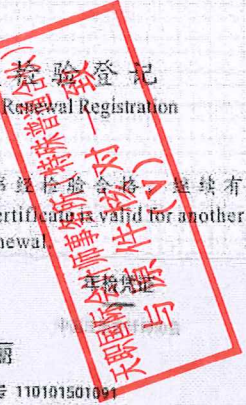 检验登记
Renewal Registration
书经检验合格，继续有
ertificate is valid for another
newal.
年检凭证
天职国际会计师事务所（特殊普通合伙）
与原件核对一致
（V）
110101501091